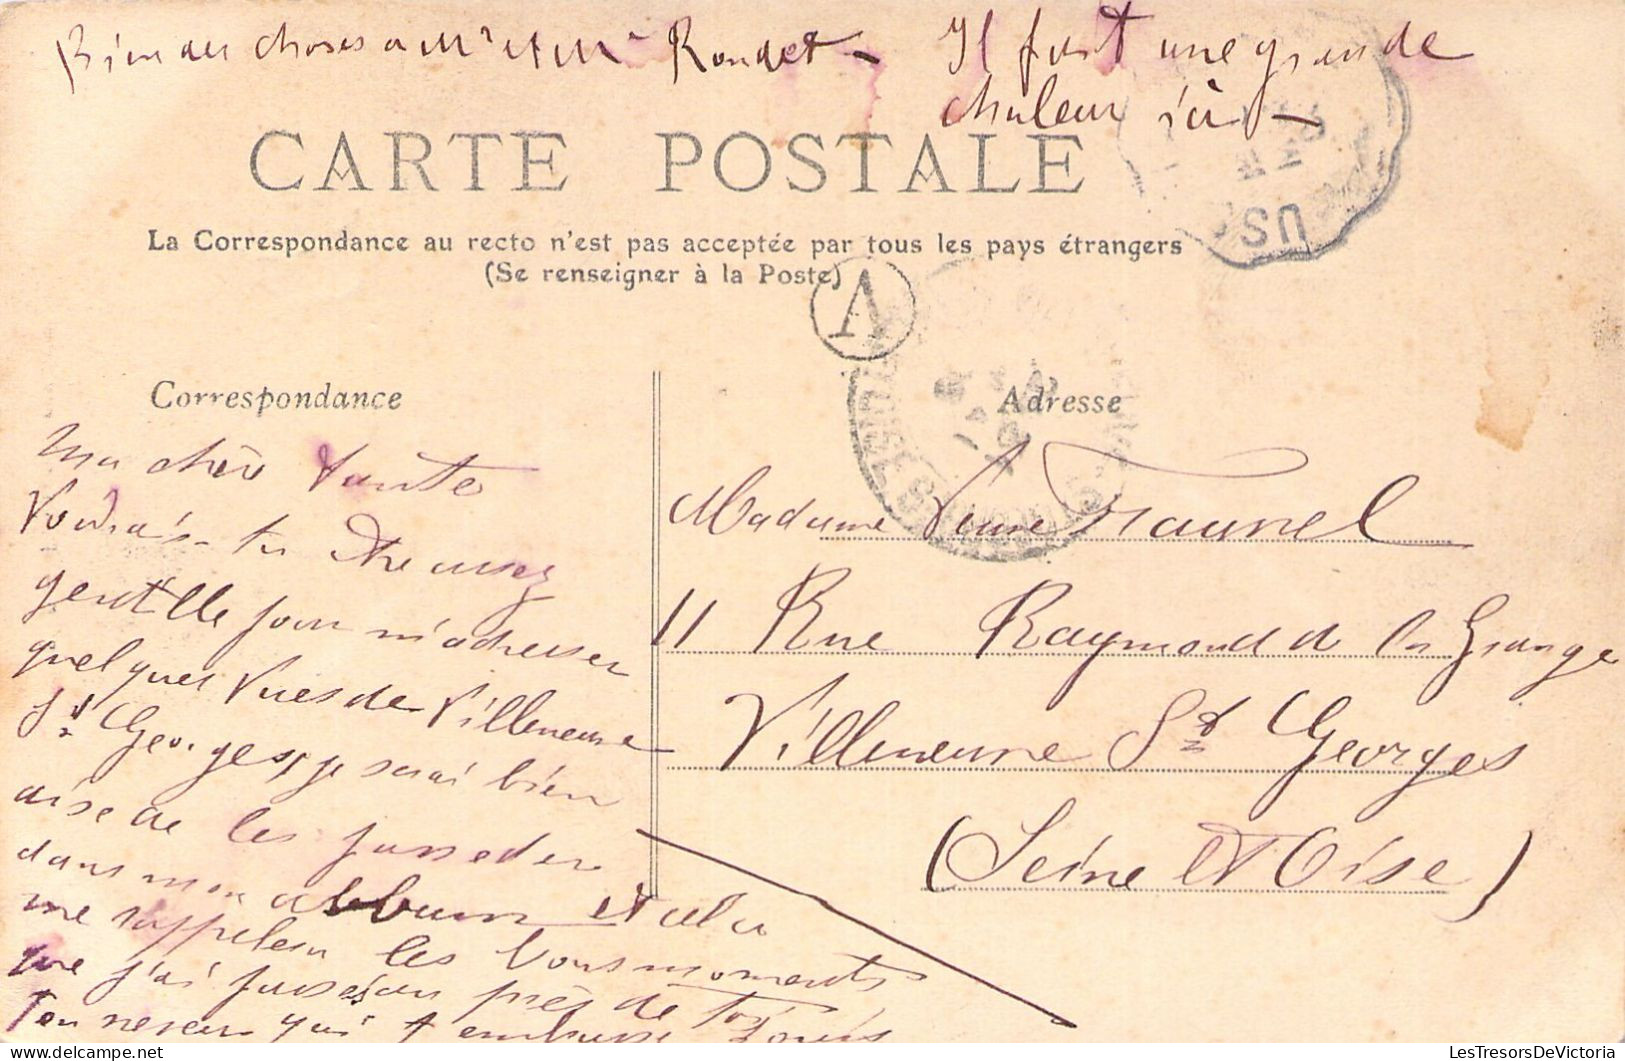 Bien des choses a Mr et Me Rondet — Il fait une grande
chaleur ici —
CARTE POSTALE
La Correspondance au recto n'est pas acceptée par tous les pays étrangers
(Se renseigner à la Poste)
A
US
Correspondance
Adresse
Ma chère tante
Voudrais-tu être assez
gentille pour m'adresser
quelques vues de Villeneuve
St Georges, je serai bien
aise de les posseder
dans mon album et cela
me rappelera les bons moments
que j'ai passés au près de toi
Ton neveu qui t'embrasse Louis
Madame Veuve Faunel
11 Rue Raymond de la Grange
Villeneuve St Georges
(Seine et Oise)
LesTresorsDeVictoria